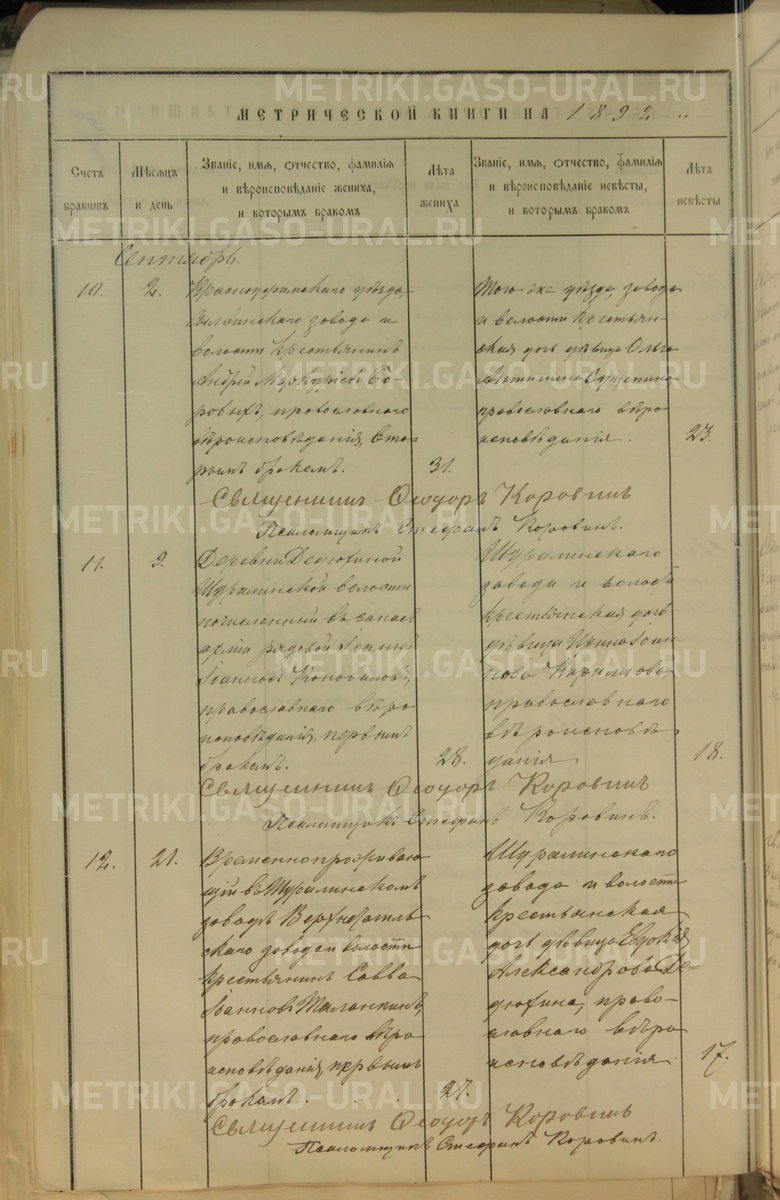 МЕТРИЧЕСКОЙ КНИГИ НА 1892
Счетъ браковъ
Мѣсяцъ и день
Званіе, имя, отчество, фамилія
и вѣроисповѣданіе жениха,
и которымъ бракомъ
Лѣта жениха
Званіе, имя, отчество, фамилія
и вѣроисповѣданіе невѣсты,
и которымъ бракомъ
Лѣта невѣсты
Сентябрь.
10.
2.
Красноуфимскаго уѣзда,
завода и
волости крестьянинъ
Андрей Меркурьевъ Бо-
ровыхъ, православнаго
вѣроисповѣданія, вто-
рымъ бракомъ.
31.
Того же уѣзда, завода
и волости крестьян-
ская дочь дѣвица Ольга
Антипина
православнаго вѣро
исповѣданія.
23.
Священникъ Ѳеодоръ Коровинъ
Псаломщикъ Стефанъ Коровинъ.
11.
9.
Деревни Дедюхиной
Шуралинской волости
зачисленный въ запасъ
арміи рядовой Іоаннъ
Іоанновъ Коноваловъ,
православнаго вѣро
исповѣданія, первымъ
бракомъ.
28.
Шуралинскаго
завода и волости
крестьянская дочь
дѣвица Ирина Іоан-
нова Кириллова
православнаго
вѣроисповѣ
данія
18.
Священникъ Ѳеодоръ Коровинъ
Псаломщикъ Стефанъ Коровинъ.
12.
21.
Временно проживаю
щій въ Шуралинскомъ
заводѣ Верхнетагиль
скаго завода и волости
крестьянинъ Савва
Іоанновъ Маланкинъ,
православнаго вѣро
исповѣданія, первымъ
бракомъ.
27.
Шуралинскаго
завода и волости
крестьянская
дочь дѣвица Евдокія
Александрова Де-
дюхина, право-
славнаго вѣро
исповѣданія
17.
Священникъ Ѳеодоръ Коровинъ
Псаломщикъ Стефанъ Коровинъ.
METRIKI.GASO-URAL.RU